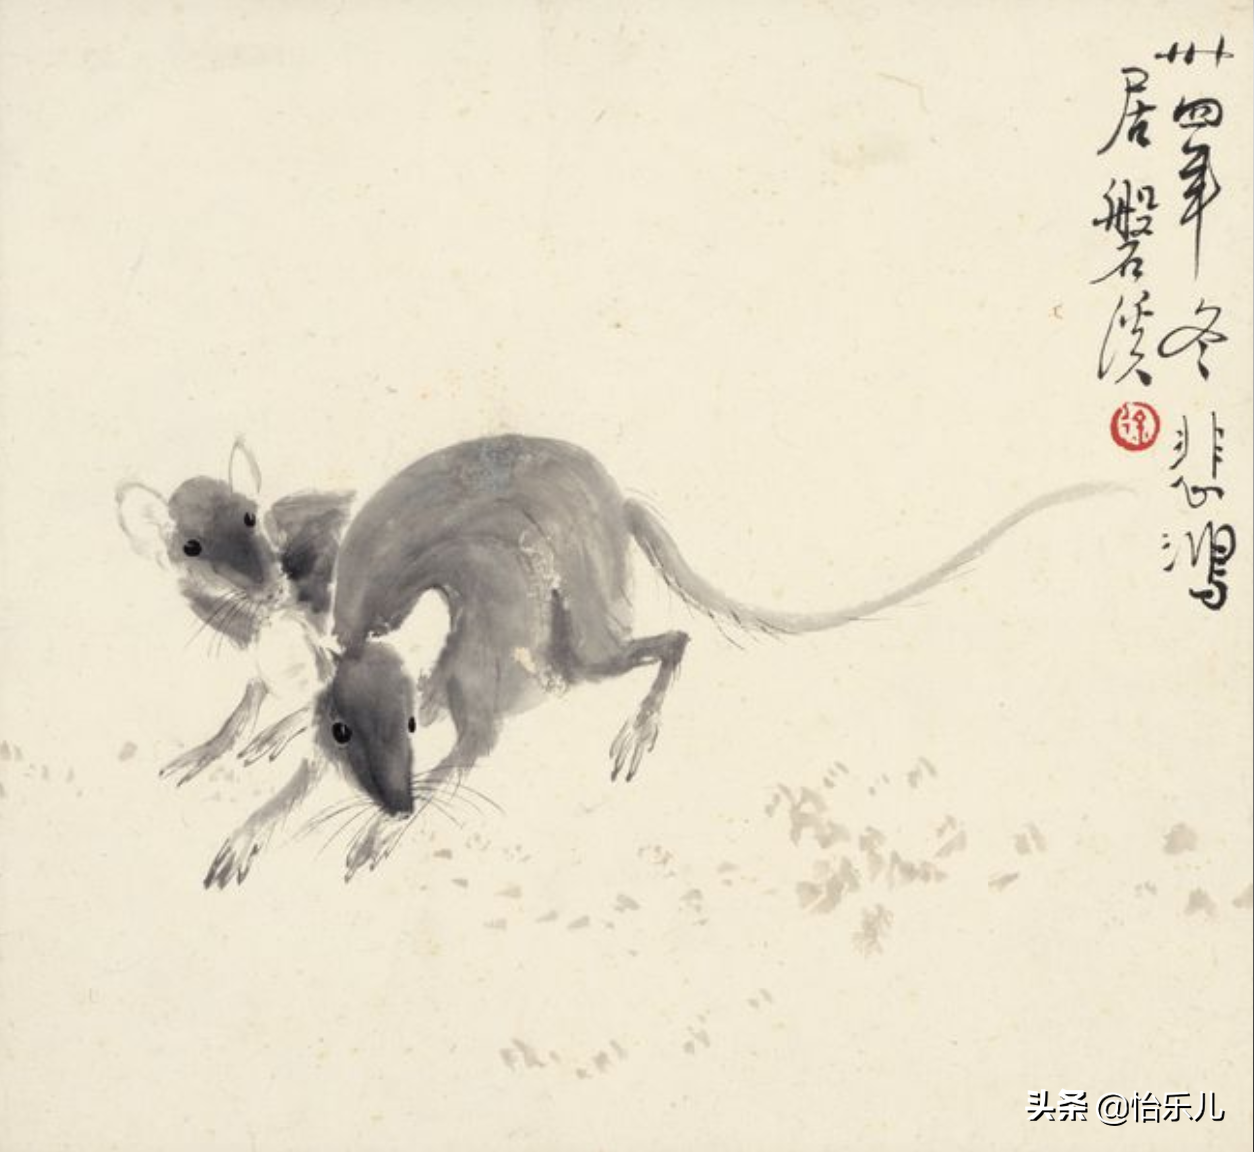 卅四年冬悲鴻
居磐溪
徐
头条 @怡乐儿